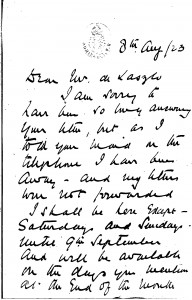 8th Aug/23
Dear Mr. de Laszlo
I am sorry to
have been so long answering
your letter, but, as I
told your maid on the
telephone I have been
away - and my letters
were not forwarded
I shall be here except -
Saturdays and Sundays -
until 9th September
And will be available
on the days you mention
at the end of the month